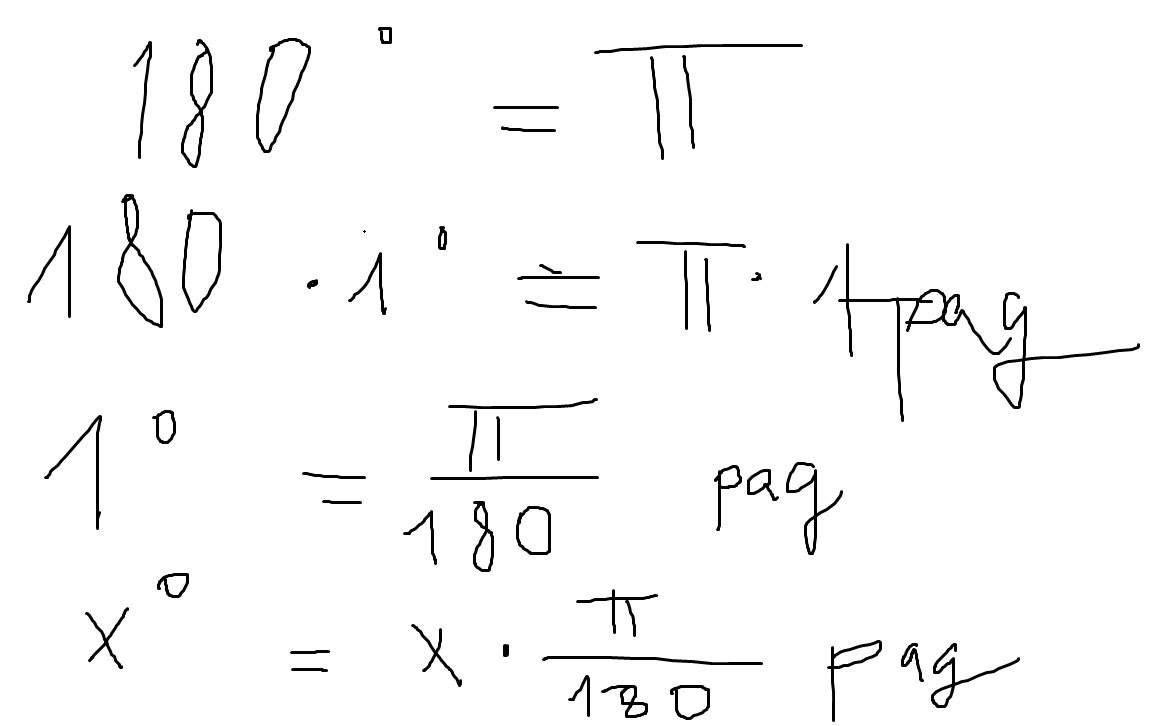 180° = π
180 · 1° = π · 1 рад
1° = π/180 рад
x° = x · π/180 рад